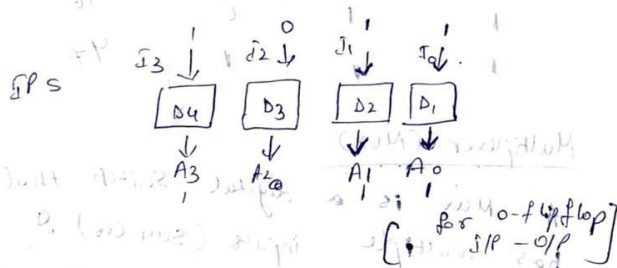 1 0 1 1
I3 I2 I1 I0
IPS
D4 D3 D2 D1
A3 A2 A1 A0
1 0 1 1
[for D-flipflop
I/P - O/P]